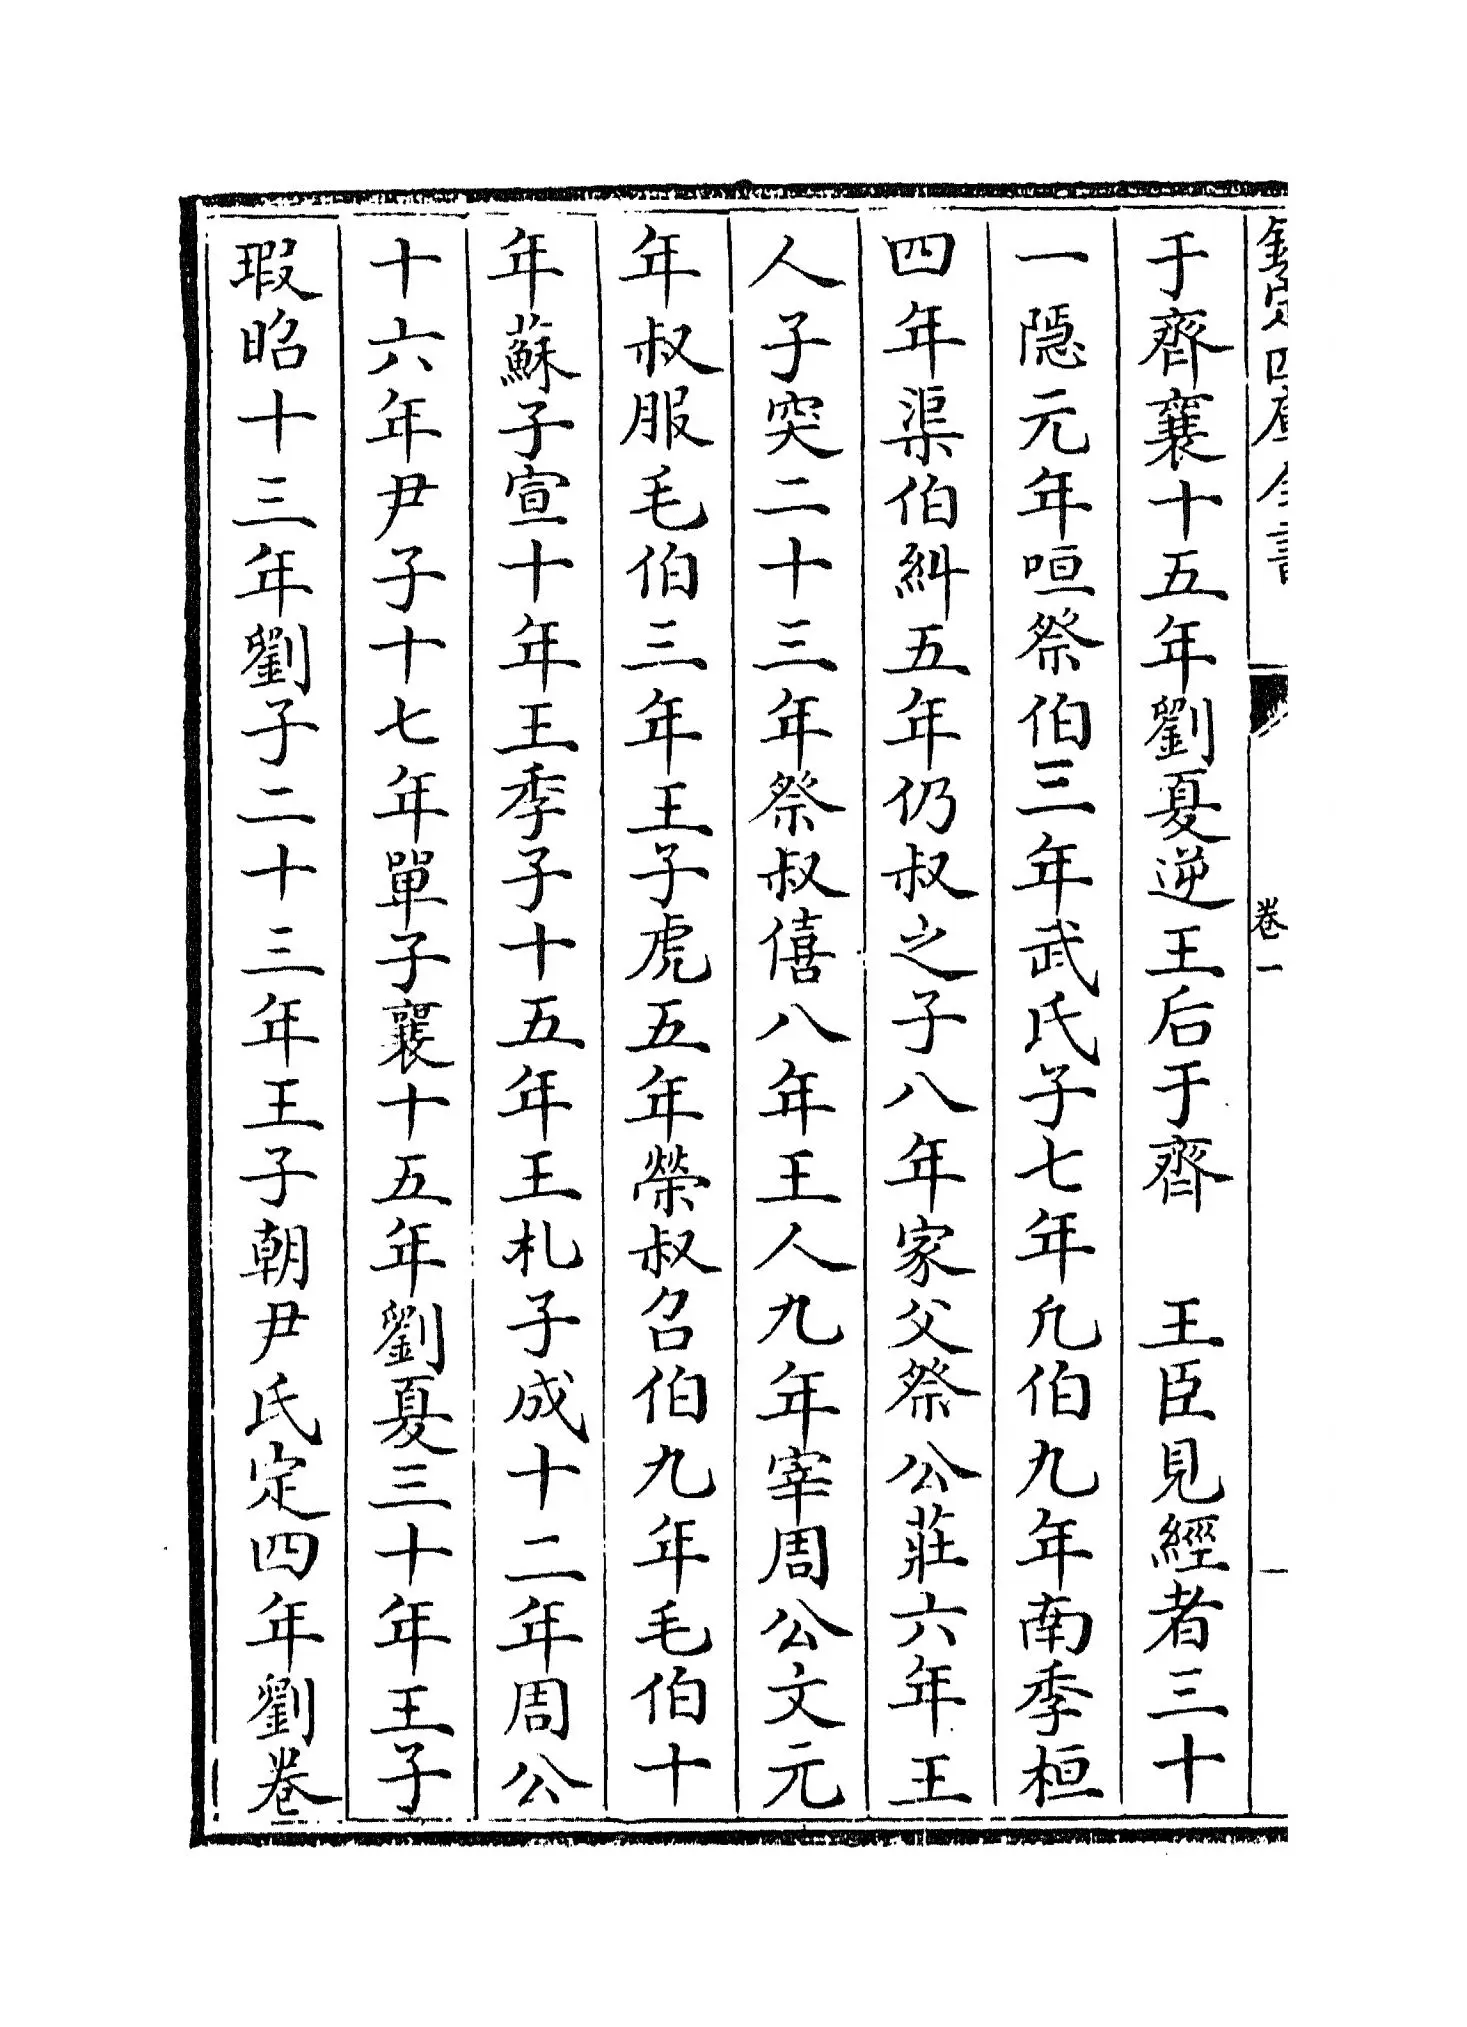 欽定四庫全書
卷一
于齊襄十五年劉夏逆王后于齊　王臣見經者三十
一隠元年咺祭伯三年武氏子七年凡伯九年南季桓
四年渠伯糾五年仍叔之子八年家父祭公莊六年王
人子突二十三年祭叔僖八年王人九年宰周公文元
年叔服毛伯三年王子虎五年榮叔召伯九年毛伯十
年蘇子宣十年王季子十五年王札子成十二年周公
十六年尹子十七年單子襄十五年劉夏三十年王子
瑕昭十三年劉子二十三年王子朝尹氏定四年劉卷